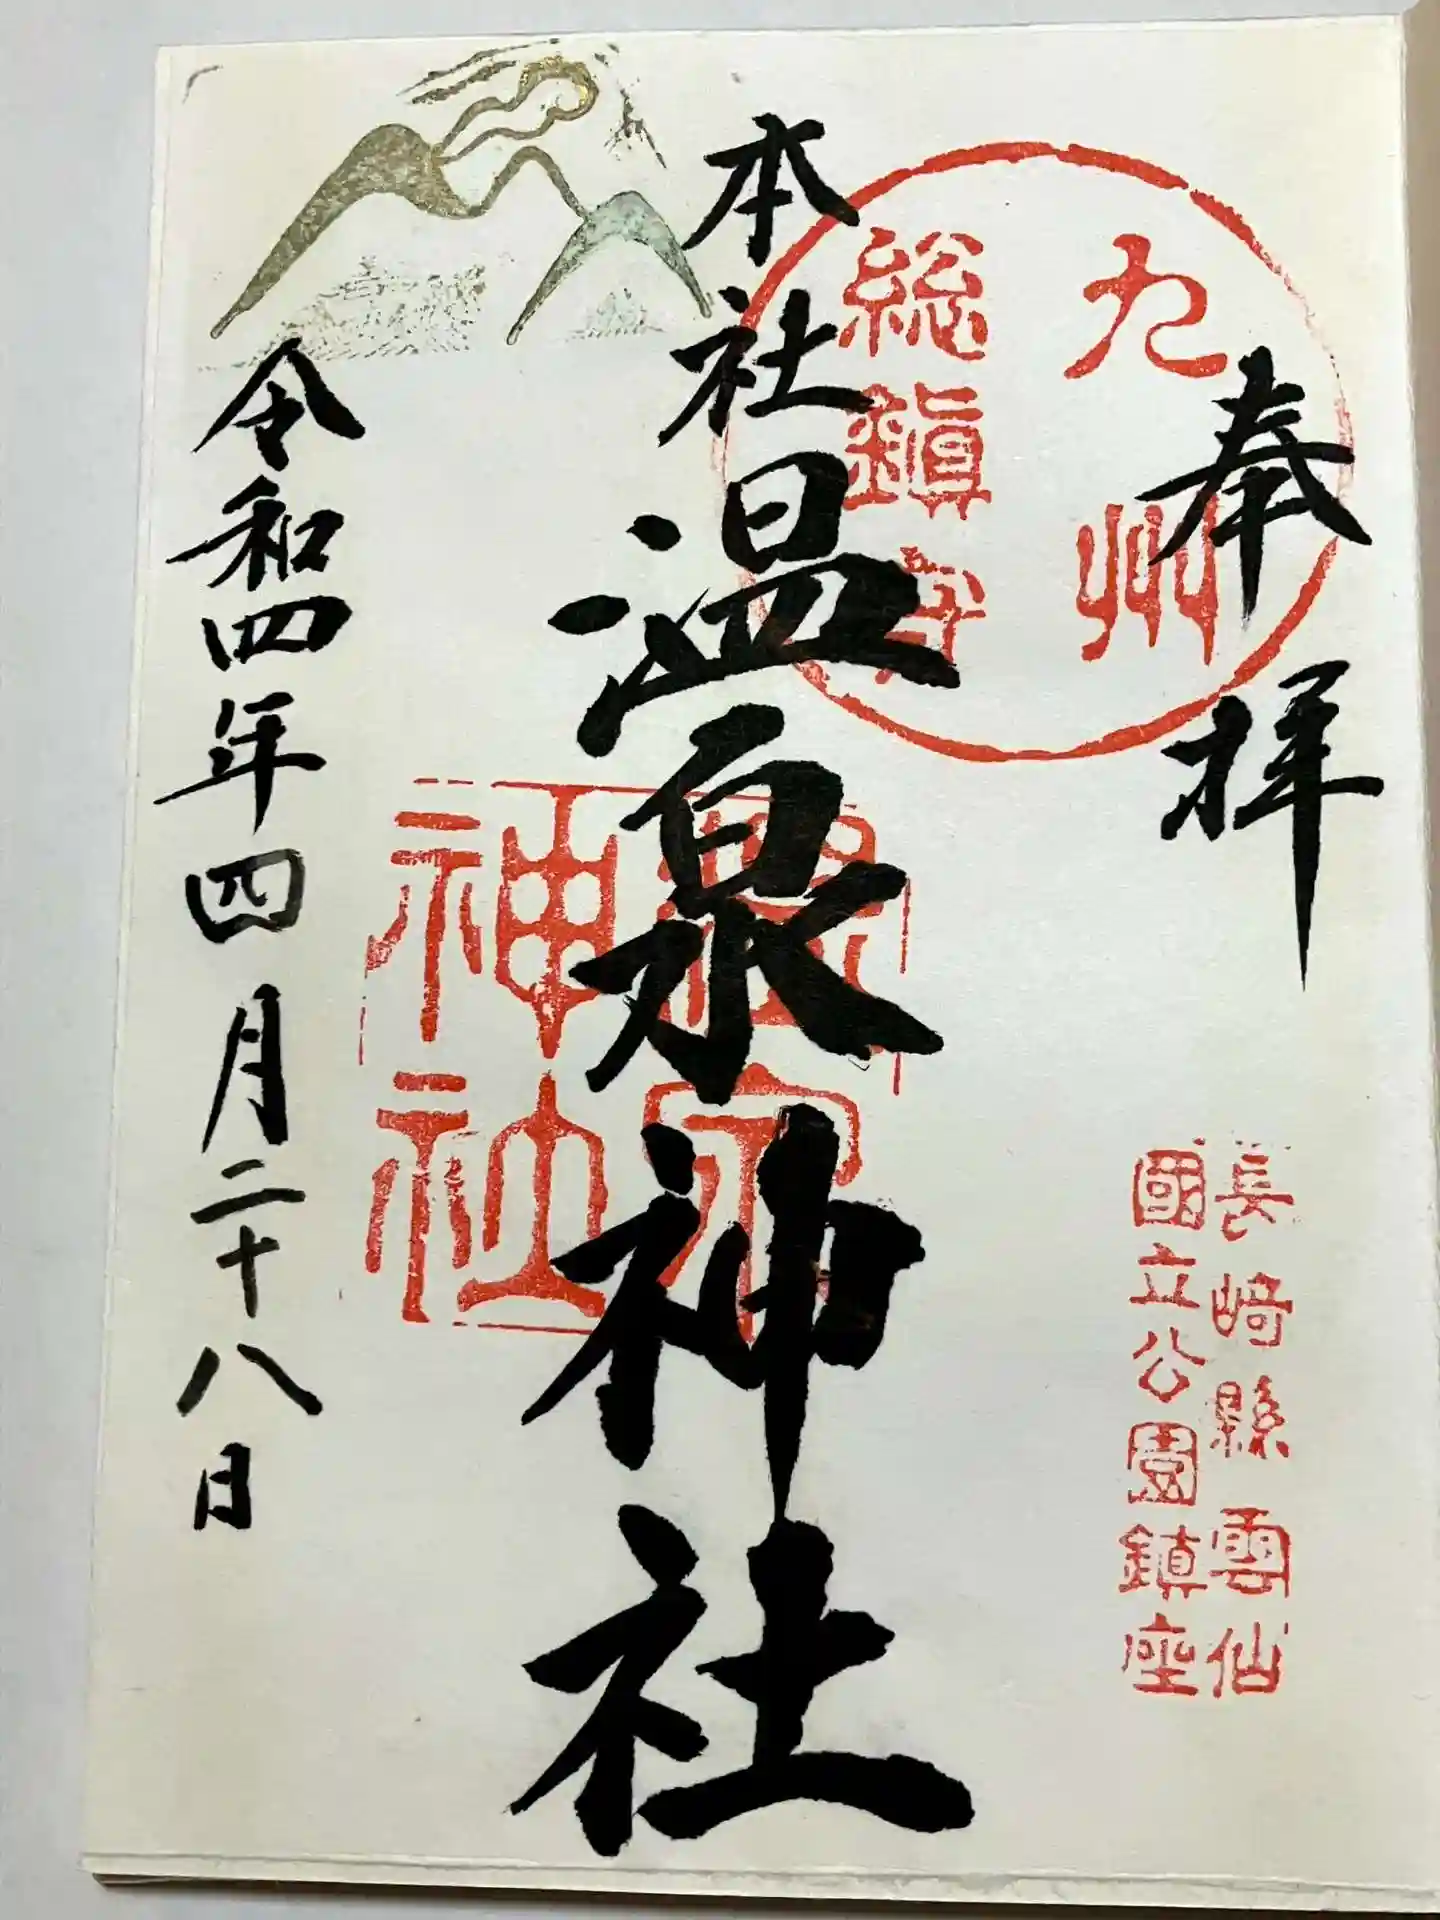 奉拝
九州
総鎮守
長崎縣雲仙
國立公園鎮座
本社温泉神社
神社
令和四年四月二十八日